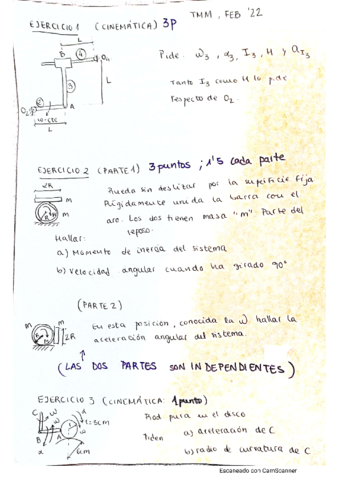 TMM, FEB '22
EJERCICIO 1 (CINEMÁTICA) 3P
L
B
4
O4
3
L
A
2
O2
ω=cte
L
Pide: ω3, α3, I3, H y aI3
Tanto I3 como H lo pide
respecto de O2.
EJERCICIO 2 (PARTE 1) 3 puntos; 1'5 cada parte
2R
m
R
m
Rueda sin deslizar por la superficie fija
Rígidamente unida la barra con el
aro. Los dos tienen masa "m". Parte del
reposo.
Hallar:
a) Momento de inercia del sistema
b) Velocidad angular cuando ha girado 90º
(PARTE 2)
m
m
R
2R
En esta posición, conocida la ω, hallar la
aceleración angular del sistema.
(LAS DOS PARTES SON INDEPENDIENTES)
EJERCICIO 3 (CINEMÁTICA: 1 punto)
C
ω
ω
A
r=5cm
B
A
x
Rod. pura en el disco
Piden
a) Aceleración de C
b) radio de curvatura de C
Escaneado con CamScanner